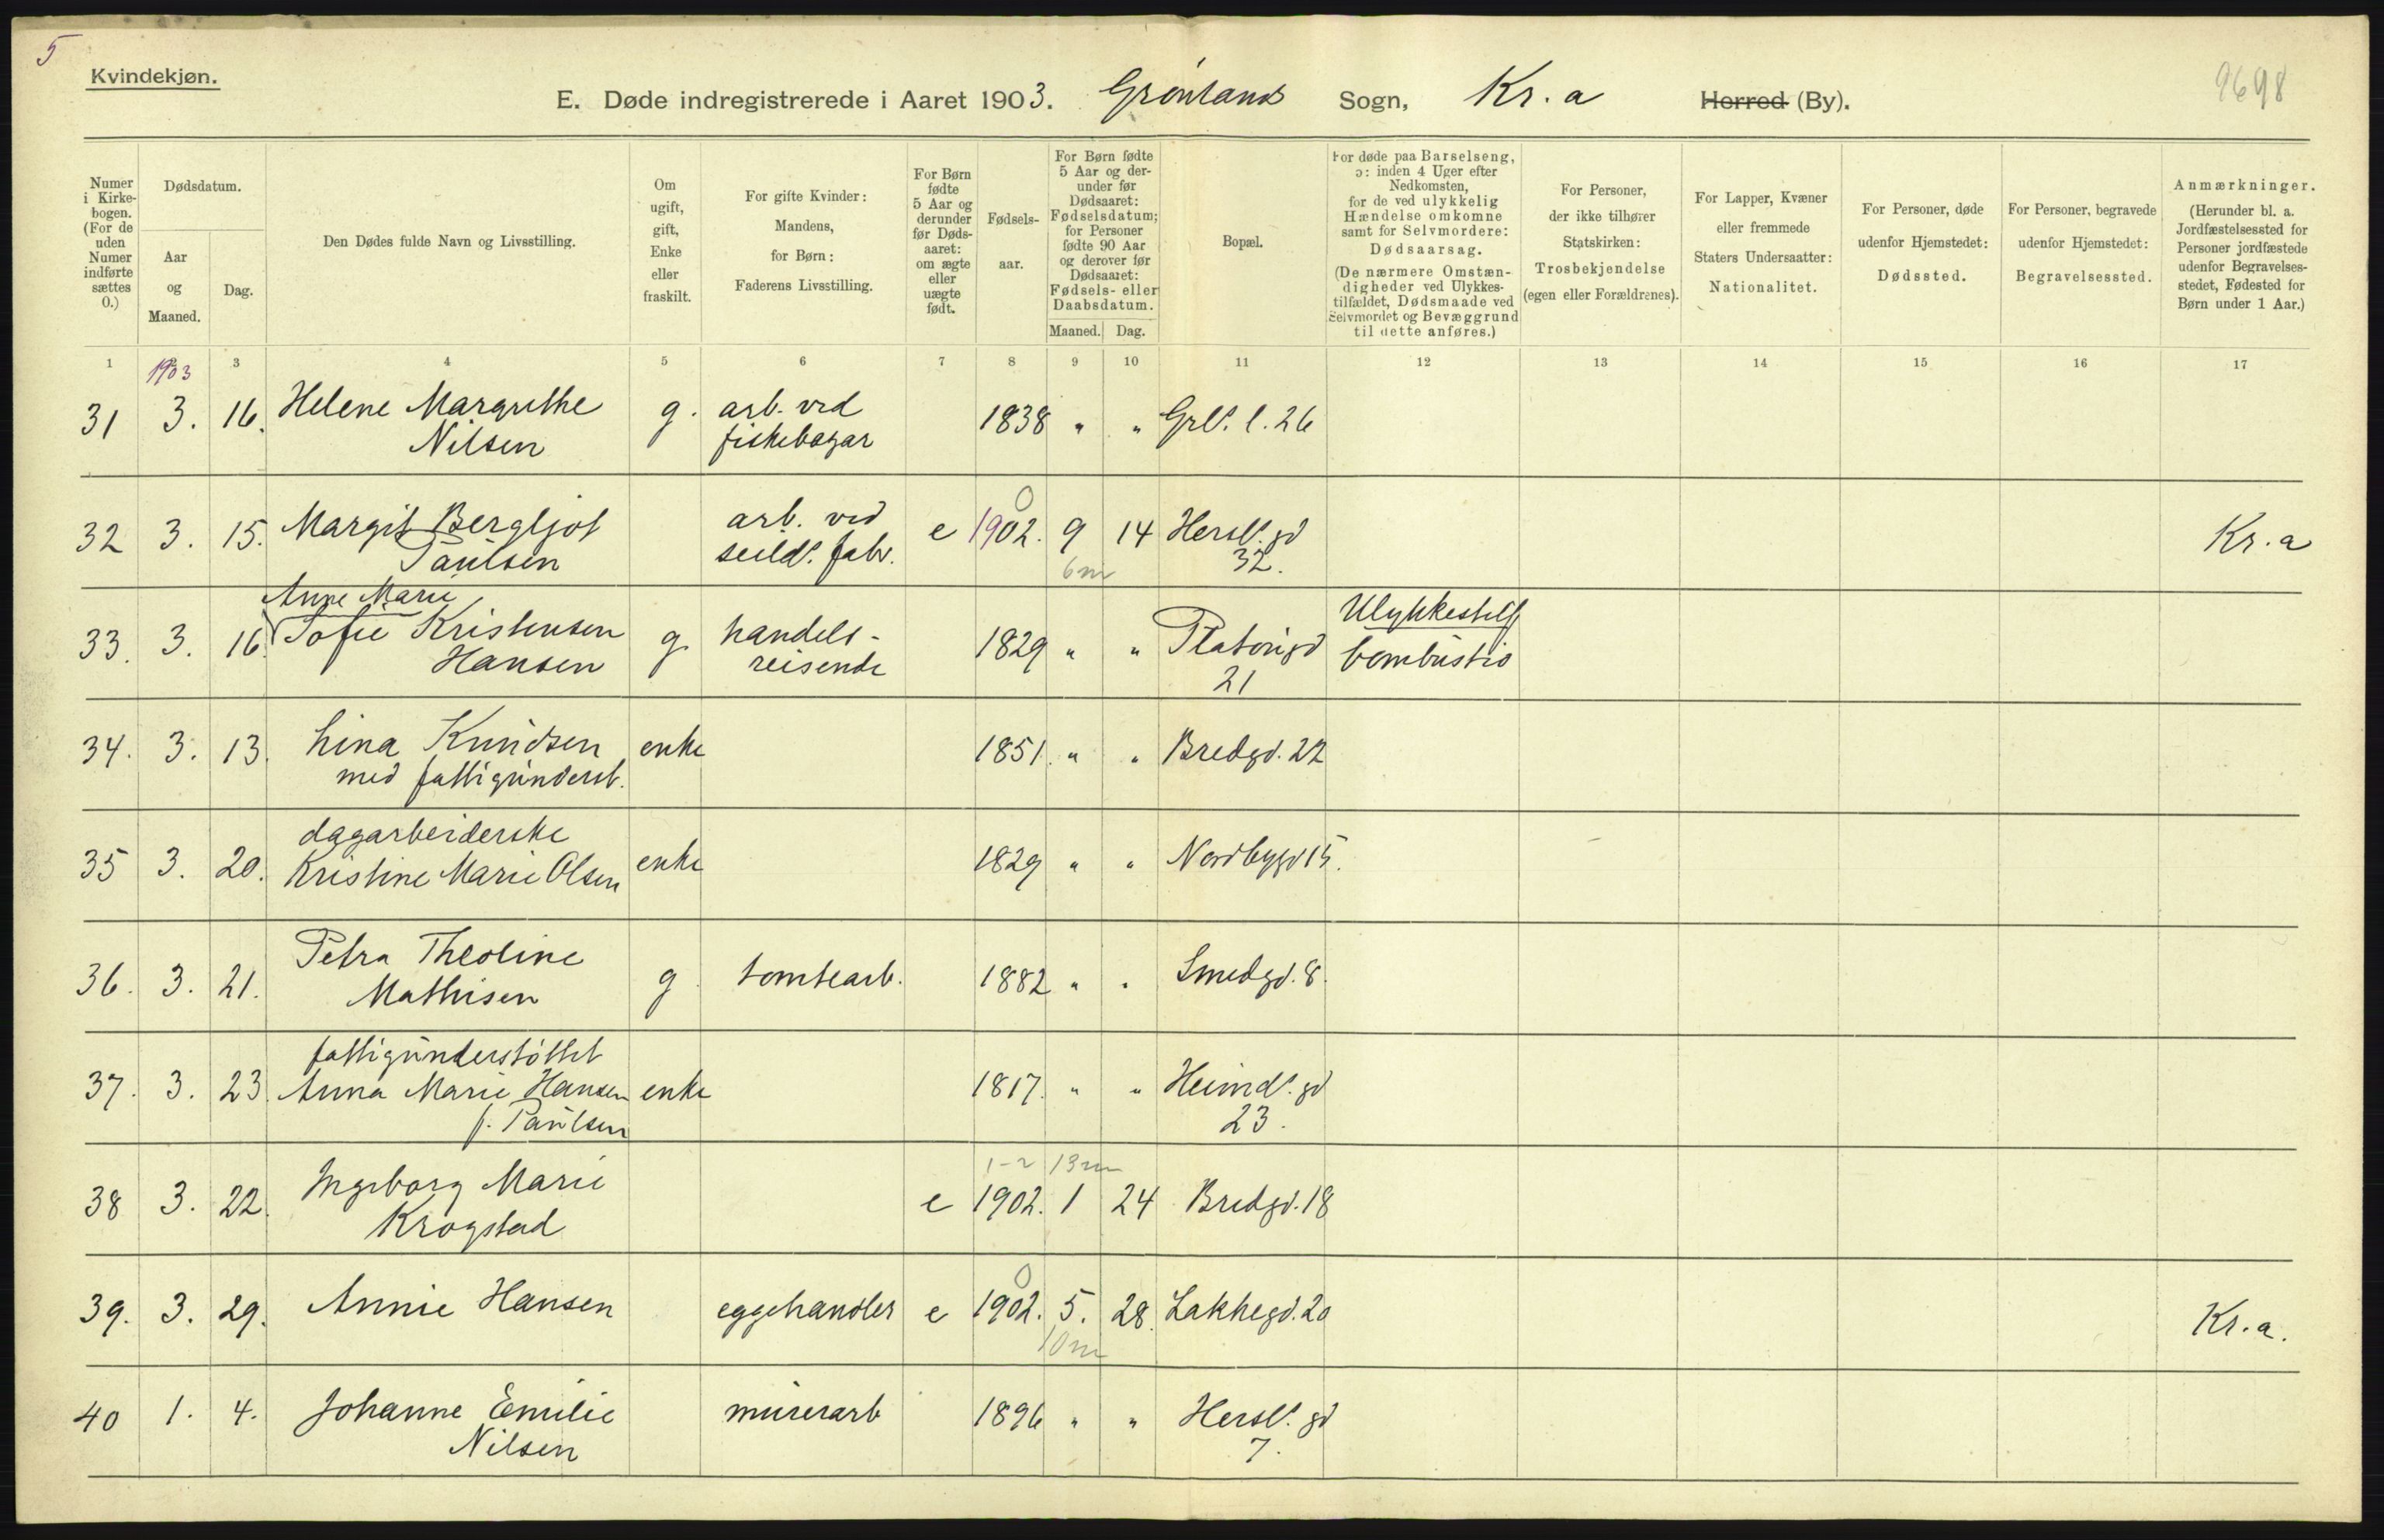 5
Kvindekjøn.
E. Døde indregistrerede i Aaret 1903. Grønlands Sogn, Kr.a Herred (By).
9698
Numer i Kirkebogen. (For de uden Numer indførte sættes 0.)
Dødsdatum.
Aar og Maaned.
Dag.
Den Dødes fulde Navn og Livsstilling.
Om ugift, gift, Enke eller fraskilt.
For gifte Kvinder: Mandens, for Børn: Faderens Livsstilling.
For Børn fødte 5 Aar og derunder før Dødsaaret: om ægte eller uægte født.
Fødselsaar.
For Børn fødte 5 Aar og derunder før Dødsaaret: Fødselsdatum; for Personer fødte 90 Aar og derover før Dødsaaret: Fødsels- eller Daabsdatum.
Maaned. Dag.
Bopæl.
For døde paa Barselseng, ɔ: inden 4 Uger efter Nedkomsten, for de ved ulykkelig Hændelse omkomne samt for Selvmordere: Dødsaarsag. (De nærmere Omstændigheder ved Ulykkestilfældet, Dødsmaade ved Selvmordet og Bevæggrund til dette anføres.)
For Personer, der ikke tilhører Statskirken: Trosbekjendelse (egen eller Forældrenes).
For Lapper, Kvæner eller fremmede Staters Undersaatter: Nationalitet.
For Personer, døde udenfor Hjemstedet: Dødssted.
For Personer, begravede udenfor Hjemstedet: Begravelsessted.
Anmærkninger. (Herunder bl. a. Jordfæstelsessted for Personer jordfæstede udenfor Begravelsesstedet, Fødested for Børn under 1 Aar.)
1 3 4 5 6 7 8 9 10 11 12 13 14 15 16 17
1903
31 3. 16. Helene Margrethe g. arb. ved 1838 " " Grl. l. 26
Nilsen fiskebogar
0
32 3. 15. Margit Bergljot arb. ved e 1902. 9 14 Hersl. gd Kr.a
Paulsen seild. fabr. 6m 32.
Anne Marie Ulykkestilf
33. 3. 16. Sofie Kristensen g handels- 1829 " " Platousgd combustio
Hansen reisende 21
34. 3. 13. Lina Knudsen enke 1851. " " Bredgd. 22
med fattigunderst.
dagarbeiderske
35 3. 20. Kristine Marie Olsen enke 1829 " " Nordbygd 15.
36. 3. 21. Petra Theoline g tomtearb. 1882 " " Smedgd. 8.
Mathisen
fattigunderstøttet
37. 3. 23. Anna Marie Hansen enke 1817. " " Heimd. gd
f. Paulsen 23.
1-2 13m
38 3. 22. Ingeborg Marie e 1902. 1 24 Bredgd. 18
Krogstad
0
39. 3. 29. Annie Hansen eggehandler e 1902. 5. 28. Lakkegd. 20 Kr.a.
10m
40 1. 4. Johanne Emilie murerarb 1896 " " Hersl. gd
Nilsen 7.